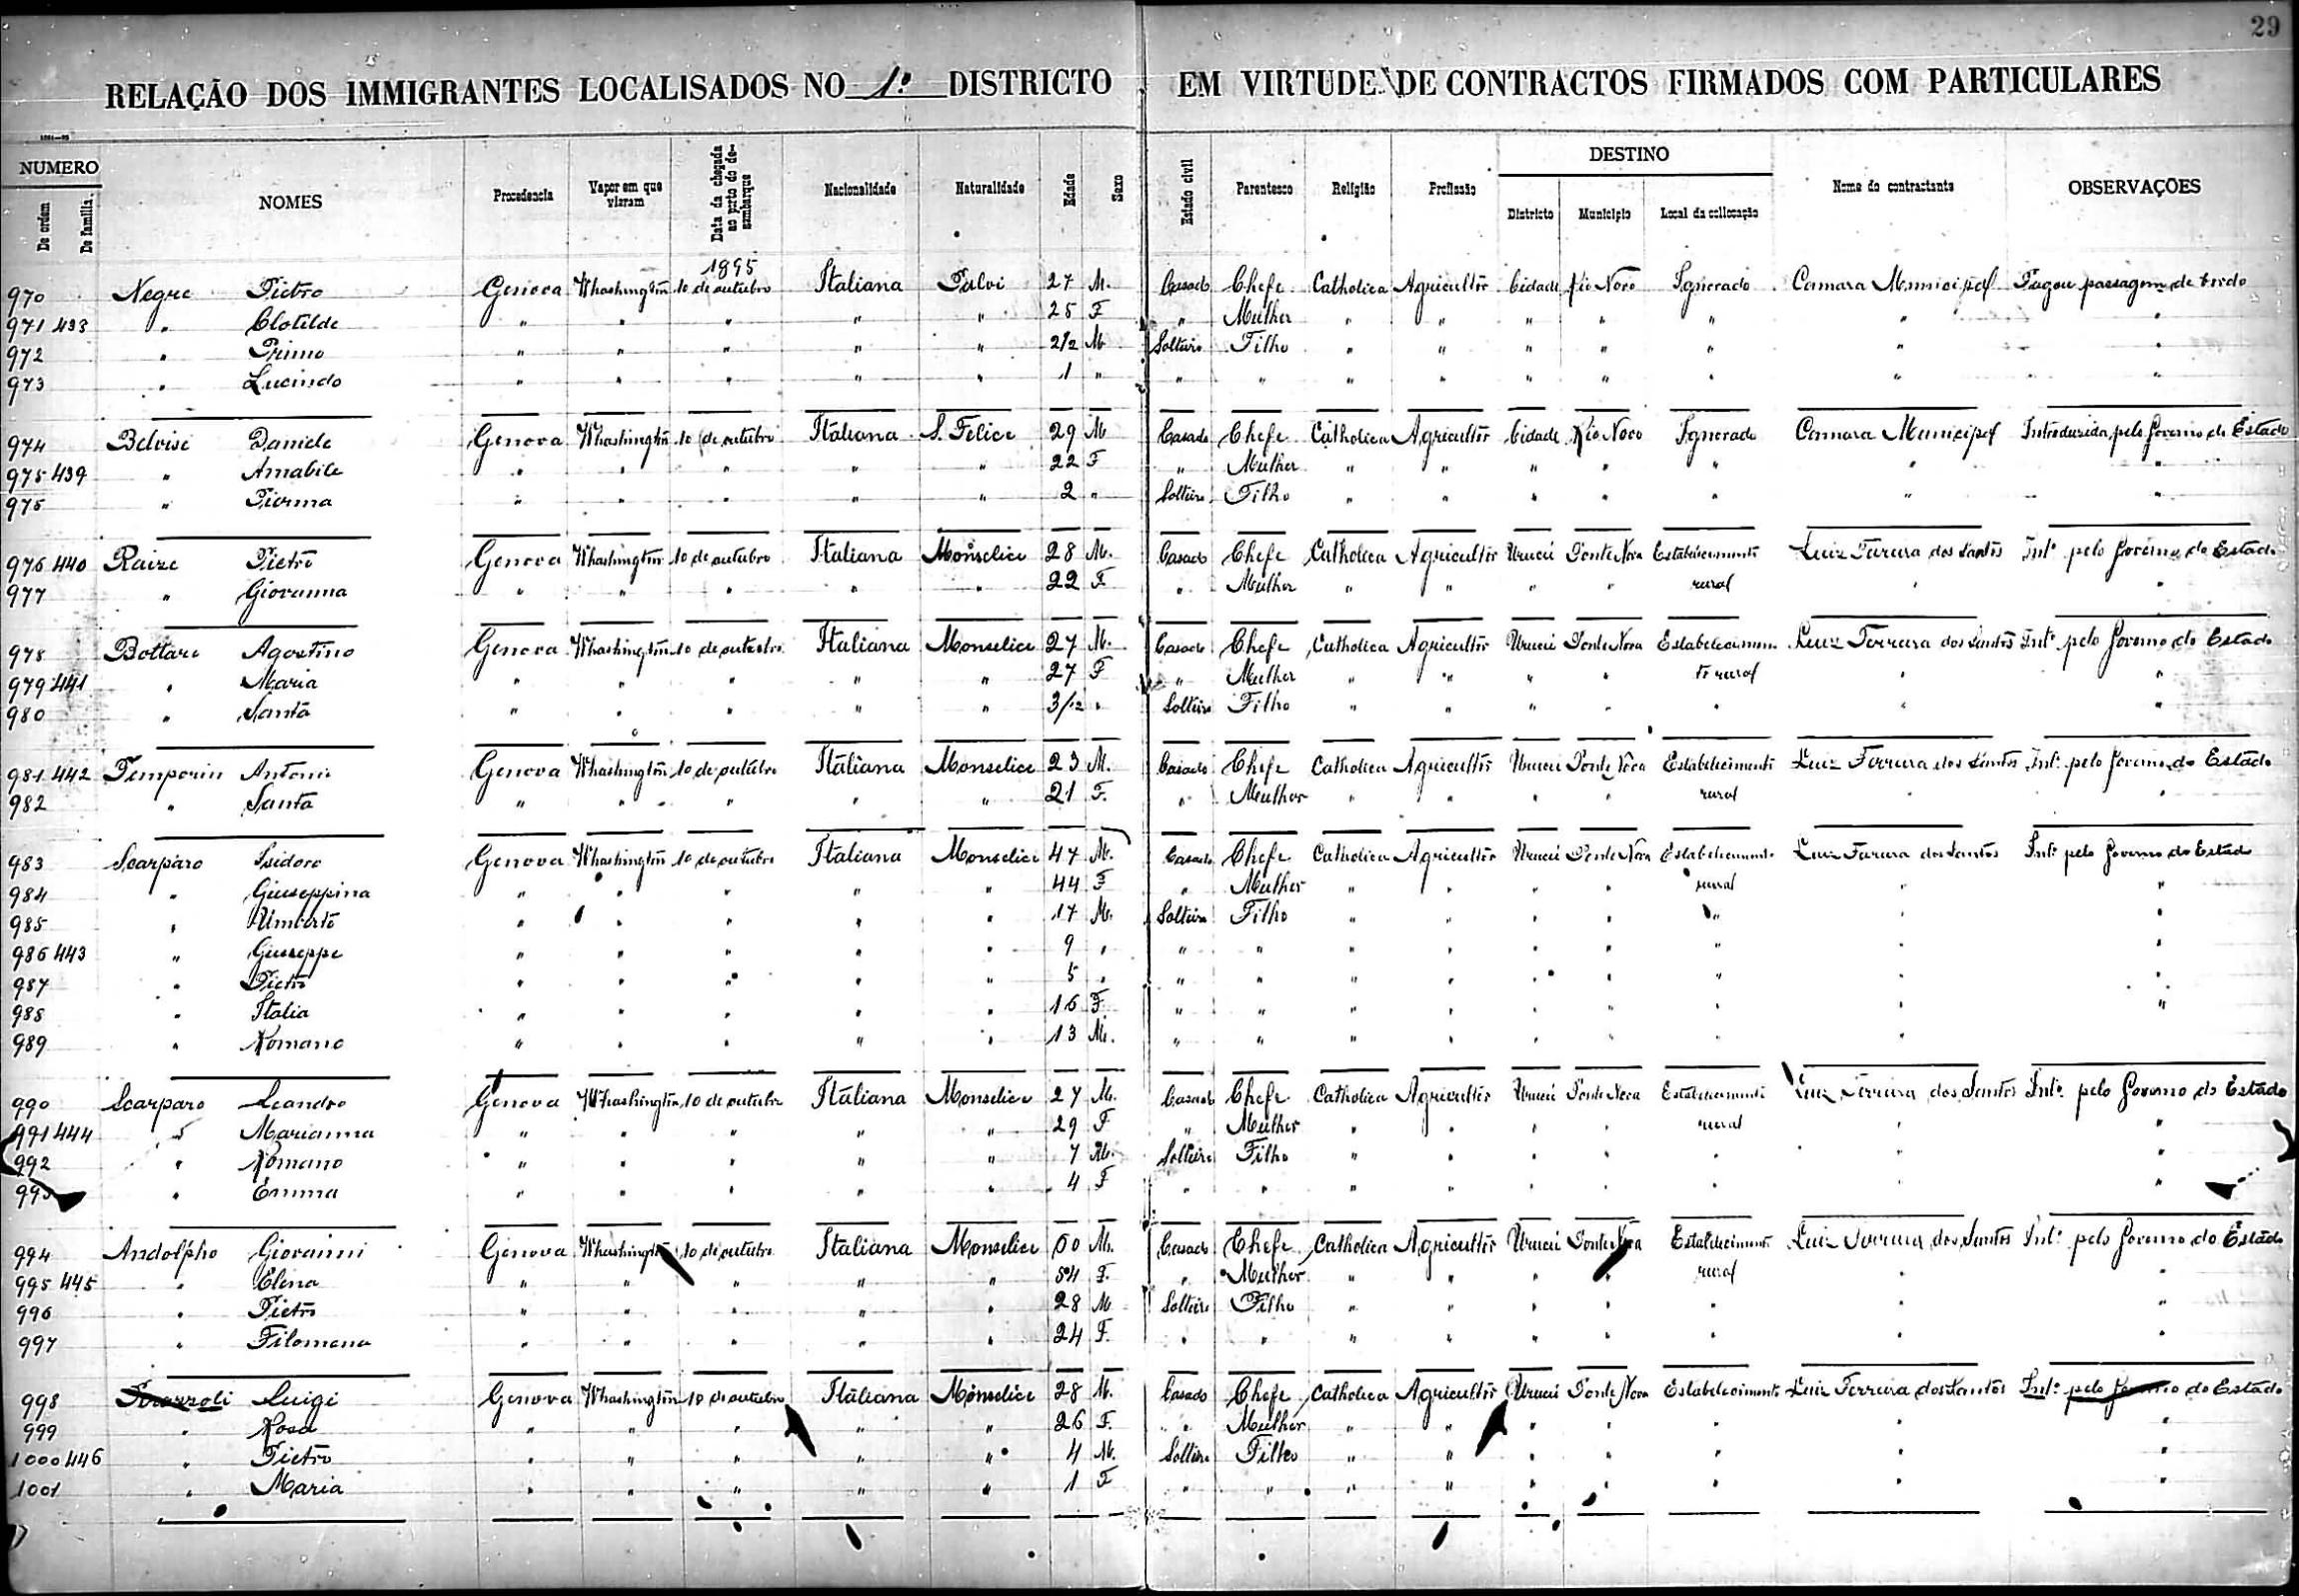 29
RELAÇÃO DOS IMMIGRANTES LOCALISADOS NO 1º DISTRICTO EM VIRTUDE DE CONTRACTOS FIRMADOS COM PARTICULARES
NUMERO De ordem De familia. NOMES Procedencia Vapor em que vieram Data da chegada ao porto do desembarque Nacionalidade Naturalidade Edade Sexo Estado civil Parentesco Religião Profissão DESTINO Districto Municipio Local da collocação Nome do contractante OBSERVAÇÕES
1895
970 Negre Pietro Genova Whashington 10 de outubro Italiana 27 M. Casado Chefe Catholica Agricultor Cidade Rio Novo Ignorado Camara Municipal Pagou passagem de bordo
971 438 " Clotilde " " " " " 25 F " Mulher " " " " " " "
972 " Primo " " " " " 2/2 M Solteiro Filho " " " " " " "
973 " Lucindo " " " " " 1 " " " " " " " " " "
974 Beloise Daniele Genova Whashington 10 de outubro Italiana S. Felice 29 M Casado Chefe Catholica Agricultor Cidade Rio Novo Ignorado Camara Municipal Introduzida pelo Governo do Estado
975 439 " Amabile " " " " " 22 F " Mulher " " " " " " "
975 " " " " " " 2 " Solteiro Filho " " " " " " "
976 440 Raize Pietro Genova Whashington 10 de outubro Italiana Monselice 28 M. Casado Chefe Catholica Agricultor Urucú Ponte Nova Estabelecimento Luiz Ferreira dos Santos Intº pelo Governo do Estado
977 " Giovanna " " " " " 22 F " Mulher " " " " rural " "
978 Bottare Agostino Genova Whashington 10 de outubro Italiana Monselice 27 M. Casado Chefe Catholica Agricultor Urucú Ponte Nova Estabelecimen- Luiz Ferreira dos Santos Intº pelo Governo do Estado
979 441 " Maria " " " " " 27 F " Mulher " " " " to rural " "
980 " Santa " " " " " 3/12 " Solteiro Filho " " " " " " "
981 442 Temporin Antonio Genova Whashington 10 de outubro Italiana Monselice 23 M. Casado Chefe Catholica Agricultor Urucú Ponte Nova Estabelecimento Luiz Ferreira dos Santos Intº pelo Governo do Estado
982 " Santa " " " " " 21 F. " Mulher " " " " rural " "
983 Scarparo Isidoro Genova Whashington 10 de outubro Italiana Monselice 47 M. Casado Chefe Catholica Agricultor Urucú Ponte Nova Estabelecimento Luiz Ferreira dos Santos Intº pelo Governo do Estado
984 " Giuseppina " " " " " 44 F " Mulher " " " " rural " "
985 " Umberto " " " " " 17 M. Solteiro Filho " " " " " " "
986 443 " Giuseppe " " " " " 9 " " " " " " " " " "
987 " Pietro " " " " " 5 " " " " " " " " " "
988 " Italia " " " " " 16 F " " " " " " " " "
989 " Romano " " " " " 13 M. " " " " " " " "
990 Scarparo Leandro Genova Whashington 10 de outubro Italiana Monselice 27 M. Casado Chefe Catholica Agricultor Urucú Ponte Nova Estabelecimento Luiz Ferreira dos Santos Intº pelo Governo do Estado
991 444 " Marianna " " " " " 29 F " Mulher " " " " rural " "
992 " Romano " " " " " 7 M. Solteiro Filho " " " " " " "
993 " Emma " " " " " 4 F " " " " " " " " "
994 Andolpho Giovanni Genova Whashington 10 de outubro Italiana Monselice 60 M. Casado Chefe Catholica Agricultor Urucú Ponte Nova Estabelecimento Luiz Ferreira dos Santos Intº pelo Governo do Estado
995 445 " Elena " " " " " 54 F. " Mulher " " " " rural " "
996 " Pietro " " " " " 28 M Solteiro Filho " " " " " " "
997 " Filomena " " " " " 24 F. " " " " " " " " "
998 Luigi Genova Whashington 10 de outubro Italiana Monselice 28 M. Casado Chefe Catholica Agricultor Urucú Ponte Nova Estabelecimento Luiz Ferreira dos Santos Intº pelo Governo do Estado
999 " Rosa " " " " " 26 F. " Mulher " " " " " " "
1000 446 " Pietro " " " " " 4 M. Solteiro Filho " " " " " " "
1001 " Maria " " " " " 1 F " " " " " " " " "